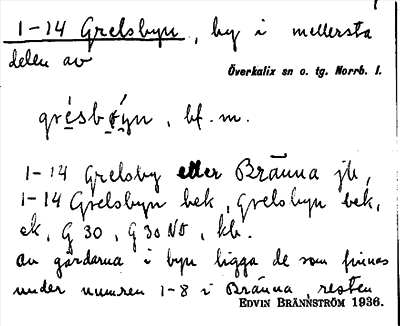 1-14 Grelsbyn, by i mellersta
delen av
Överkalix sn o. tg. Norrb. l.
bf. m.
1-14 Grelsby eller Bränna jb,
1-14 Grelsbyn bek, Grelsbyn bek,
ek, G 30, G 30 NO, kb.
av gårdarna i byn ligga de som finnas
under numren 1-8 i Bränna, resten
EDVIN BRÄNNSTRÖM 1936.